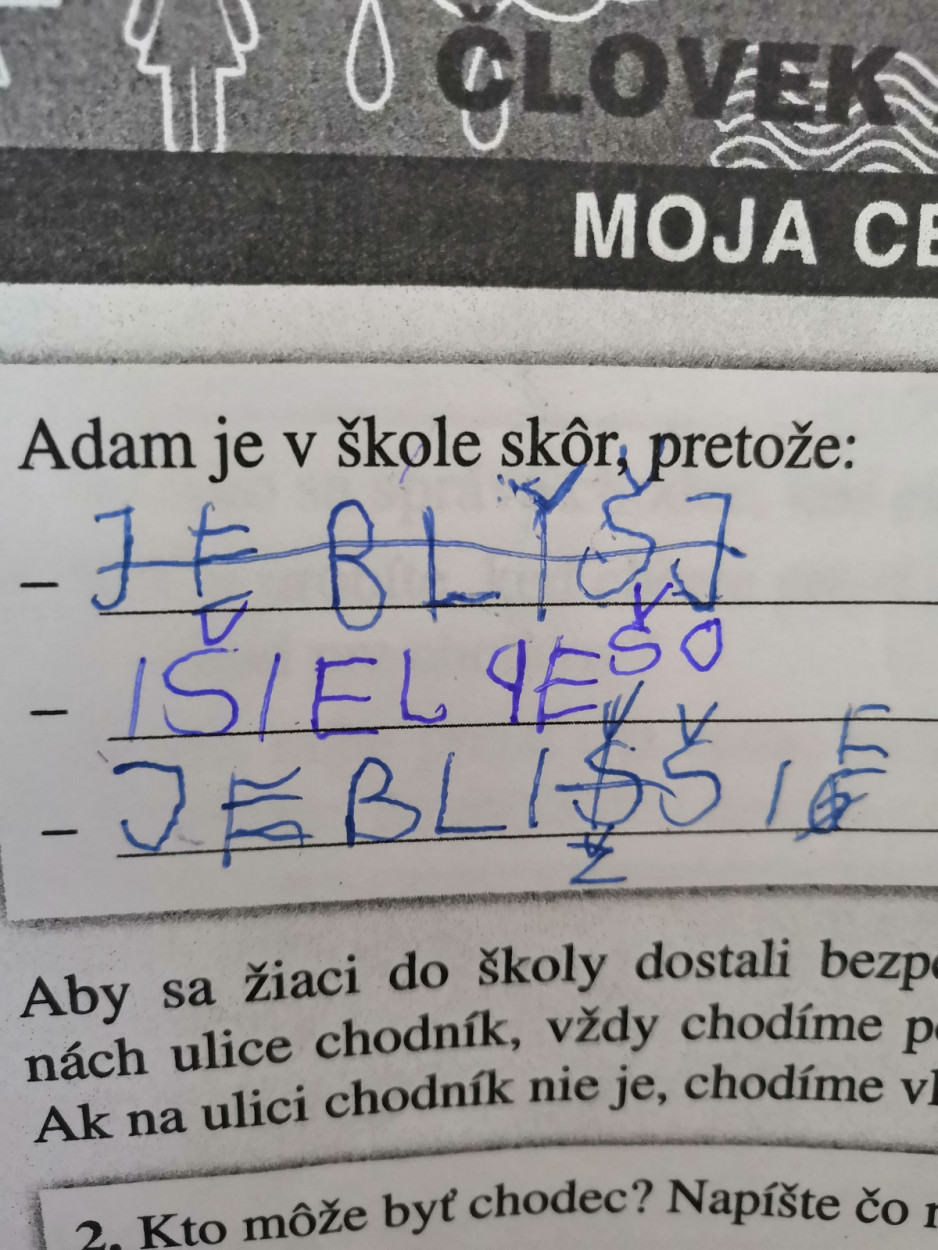 ČLOVEK
MOJA CE
Adam je v škole skôr, pretože:
– JE BLÝŠJ
– IŠIEL PEŠO
– JE BLIŽŠIE
Aby sa žiaci do školy dostali bezpe
nách ulice chodník, vždy chodíme p
Ak na ulici chodník nie je, chodíme vľ
2. Kto môže byť chodec? Napíšte čo n